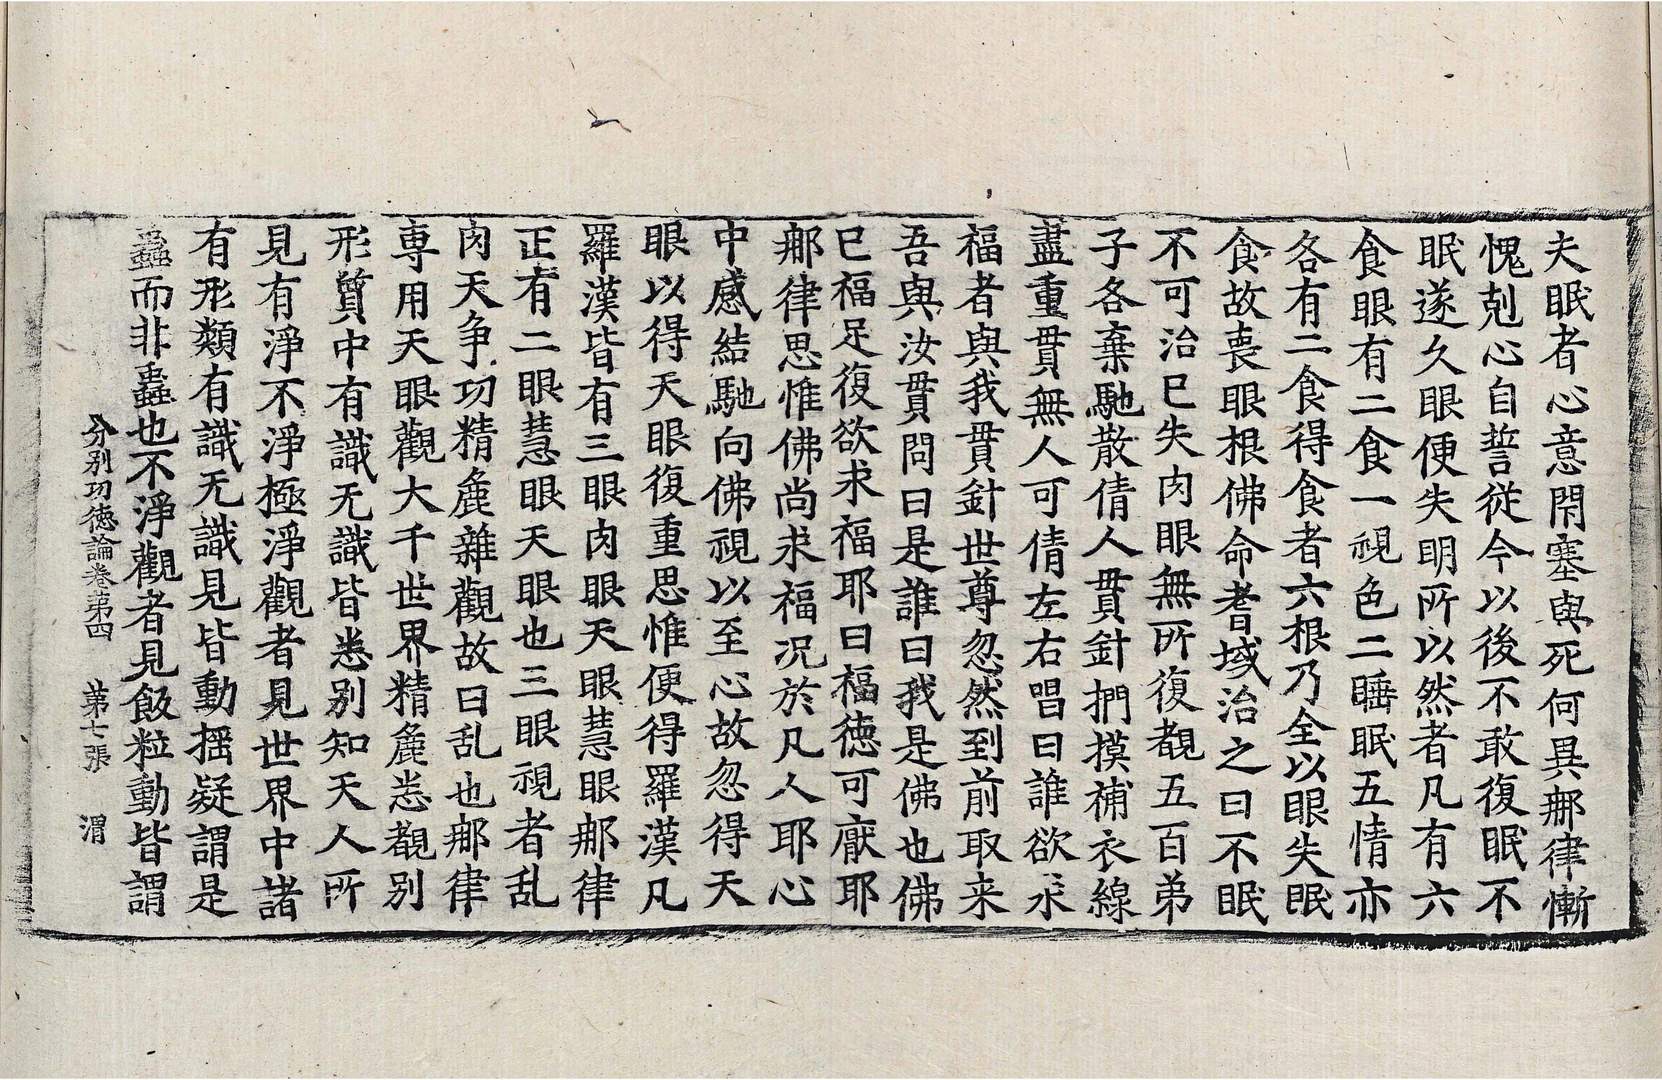 夫眠者心意閇塞與死何異鄅律慚
愧剋心自誓従今以後不敢復眠不
眠遂久眼便失明所以然者凡有六
食眼有二食一視色二睡眠五情亦
各有二食得食者六根乃全以眼失眠
食故喪眼根佛命耆域治之曰不眠
不可治已失肉眼無所復覩五百弟
子各棄馳散倩人貫針捫摸補衣線
盡重貫無人可倩左右唱曰誰欲求
福者與我貫針世尊忽然到前取来
吾與汝貫問曰是誰曰我是佛也佛
已福足復欲求福耶曰福徳可厭耶
鄅律思惟佛尚求福况於凡人耶心
中感結馳向佛視以至心故忽得天
眼以得天眼復重思惟便得羅漢凡
羅漢皆有三眼肉眼天眼慧眼鄅律
正有二眼慧眼天眼也三眼視者乱
肉天争功精麁雜觀故曰乱也鄅律
専用天眼觀大千世界精麁悉覩别
形質中有識无識皆悉别知天人所
見有淨不淨極淨觀者見世界中諸
有形類有識无識見皆動揺疑謂是
蟲而非蟲也不淨觀者見飯粒動皆謂
分别功徳論巻第四　第七張　渭